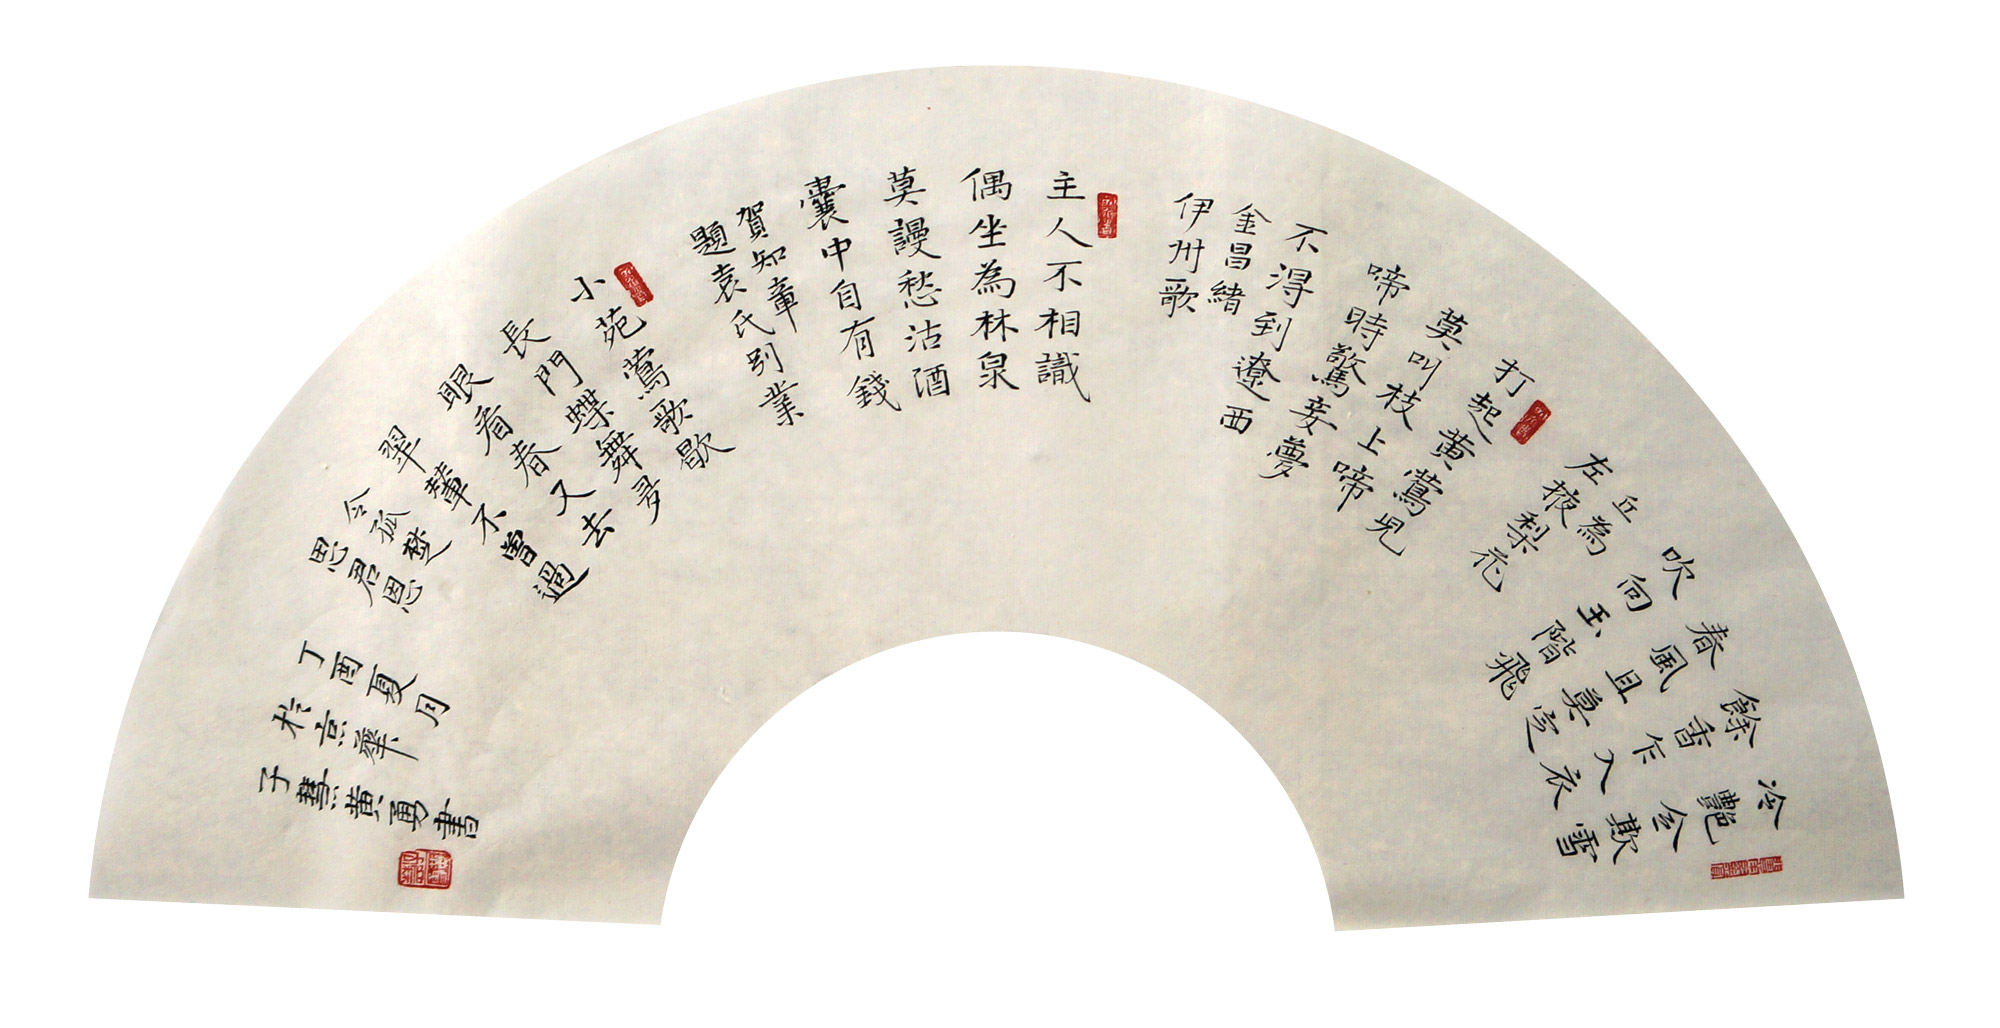 冷艷全欺雪
餘香乍入衣
春風且莫定
吹向玉階飛
丘為
左掖梨花
打起黄鶯兒
莫叫枝上啼
啼時驚妾夢
不得到遼西
金昌緒
伊州歌
主人不相識
偶坐為林泉
莫謾愁沽酒
囊中自有錢
賀知章
題袁氏別業
小苑鶯歌歇
長門蝶舞多
眼看春又去
翠輦不曾過
令狐楚
思君恩
丁酉夏月
於京華
子慧黄勇書